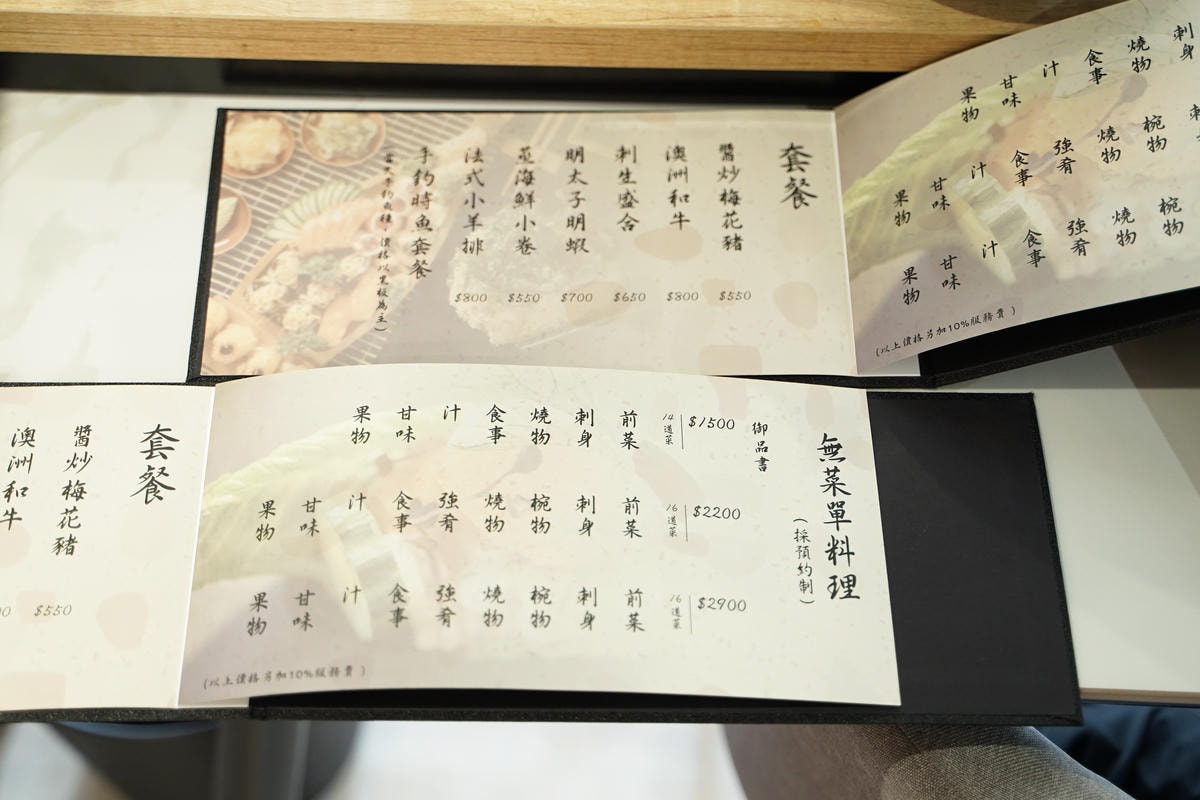 套餐
醬炒梅花豬
$550
澳洲和牛
$800
刺生盛合
$650
明太子明蝦
$700
菎海鮮小卷
$550
法式小羊排
$800
手釣時魚套餐
刺身
燒物
食事
汁
甘味
果物
椀物
燒物
強肴
食事
汁
甘味
果物
椀物
燒物
強肴
食事
汁
甘味
果物
(以上價格另加10%服務費)
無菜單料理
(採預約制)
御品書
$1500
14道菜
前菜
刺身
燒物
食事
汁
甘味
果物
$2200
16道菜
前菜
刺身
椀物
燒物
強肴
食事
汁
甘味
果物
$2900
16道菜
前菜
刺身
椀物
燒物
強肴
食事
汁
甘味
果物
(以上價格另加10%服務費)
套餐
醬炒梅花豬
$550
澳洲和牛